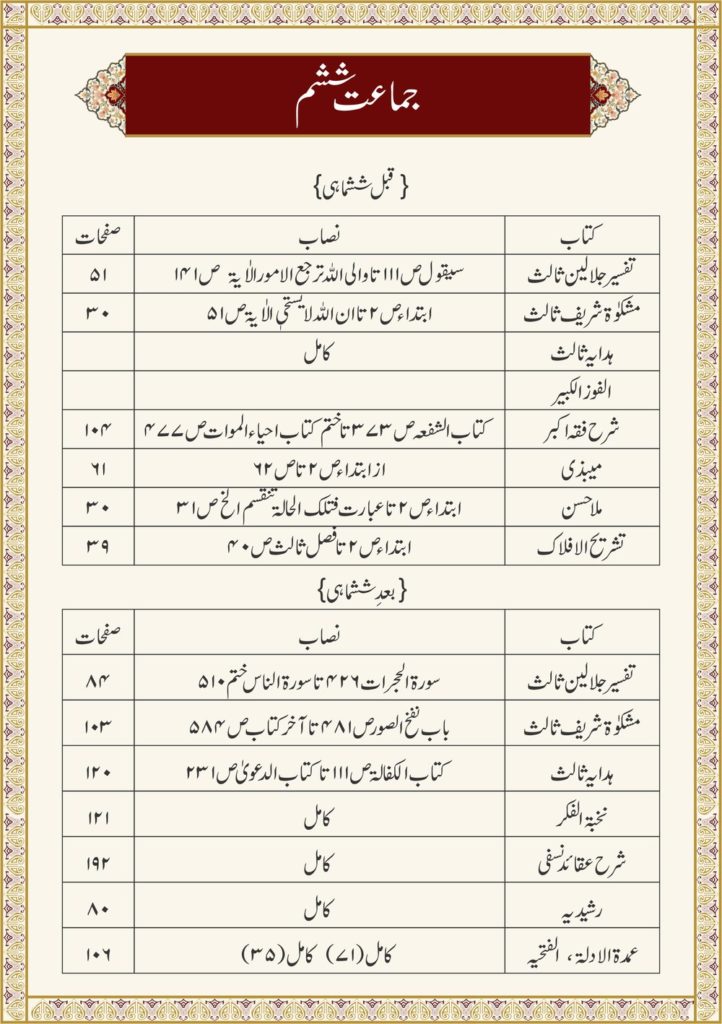 جماعت ششم
{قبل ششماہی}
کتاب نصاب صفحات
تفسیر جلالین ثالث سیقول ص ۱۱۱ تا والی اللہ ترجع الامور الاٰیۃ ص ۱۴۱ ۵۱
مشکوٰۃ شریف ثالث ابتداء ص ۲ تا ان اللہ لا یستحیٖ الاٰیۃ ص ۵۱ ۳۰
ہدایہ ثالث کامل
الفوز الکبیر
شرح فقہ اکبر کتاب الشفعہ ص ۳۷۳ تا ختم کتاب احیاء الموات ص ۴۷۷ ۱۰۴
میبذی از ابتداء ص ۲ تا ص ۶۲ ۶۱
ملا حسن ابتداء ص ۲ تا عبارت فتلک الحالۃ تنقسم الخ ص ۳۱ ۳۰
تشریح الافلاک ابتداء ص ۲ تا فصل ثالث ص ۴۰ ۳۹
{بعدِ ششماہی}
کتاب نصاب صفحات
تفسیر جلالین ثالث سورۃ الحجرات ۴۲۶ تا سورۃ الناس ختم ۵۱۰ ۸۴
مشکوٰۃ شریف ثالث باب نفخ الصور ص ۴۸۱ تا آخر کتاب ص ۵۸۴ ۱۰۳
ہدایہ ثالث کتاب الکفالۃ ص ۱۱۱ تا کتاب الدعویٰ ص ۲۳۱ ۱۲۰
نخبۃ الفکر کامل ۱۲۱
شرح عقائد نسفی کامل ۱۹۲
رشیدیہ کامل ۸۰
عمدۃ الادلۃ، الفتحیہ کامل (۷۱) کامل (۳۵) ۱۰۶